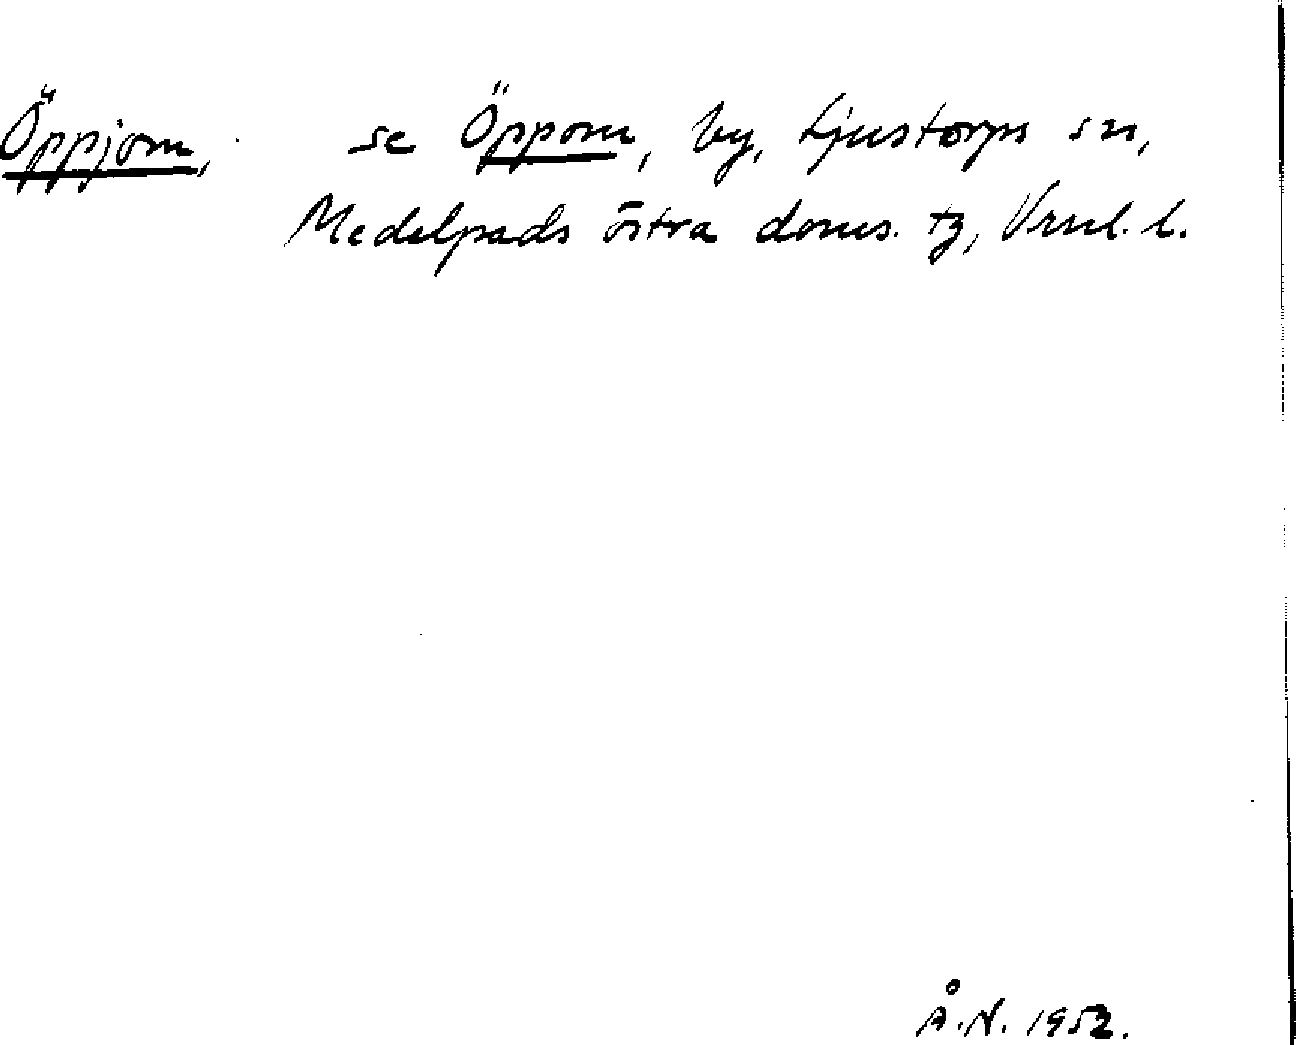 Öppjom, se Öppom, by, Ljustorps sn,
Medelpads östra doms. tg, Vrnl. l.
Å.N. 1952.